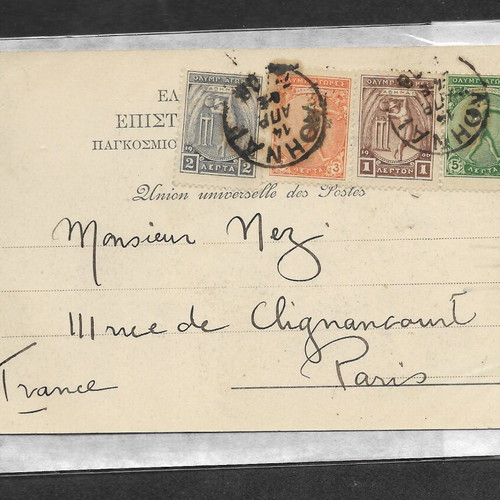 ΟΛΥΜΠ ΑΓΩΝ
2 ΛΕΠΤΑ 2
3 ΛΕΠΤΑ 3
ΑΘΗΝΑ
1 ΛΕΠΤΟΝ 1
5 ΛΕΠΤΑ
ΑΘΗΝΑΙ
14 ΑΠΡ
ΕΛ
ΕΠΙΣΤ
ΠΑΓΚΟΣΜΙΟ
Union universelle des Postes
Monsieur Nez
111 rue de Clignancourt
Paris
France